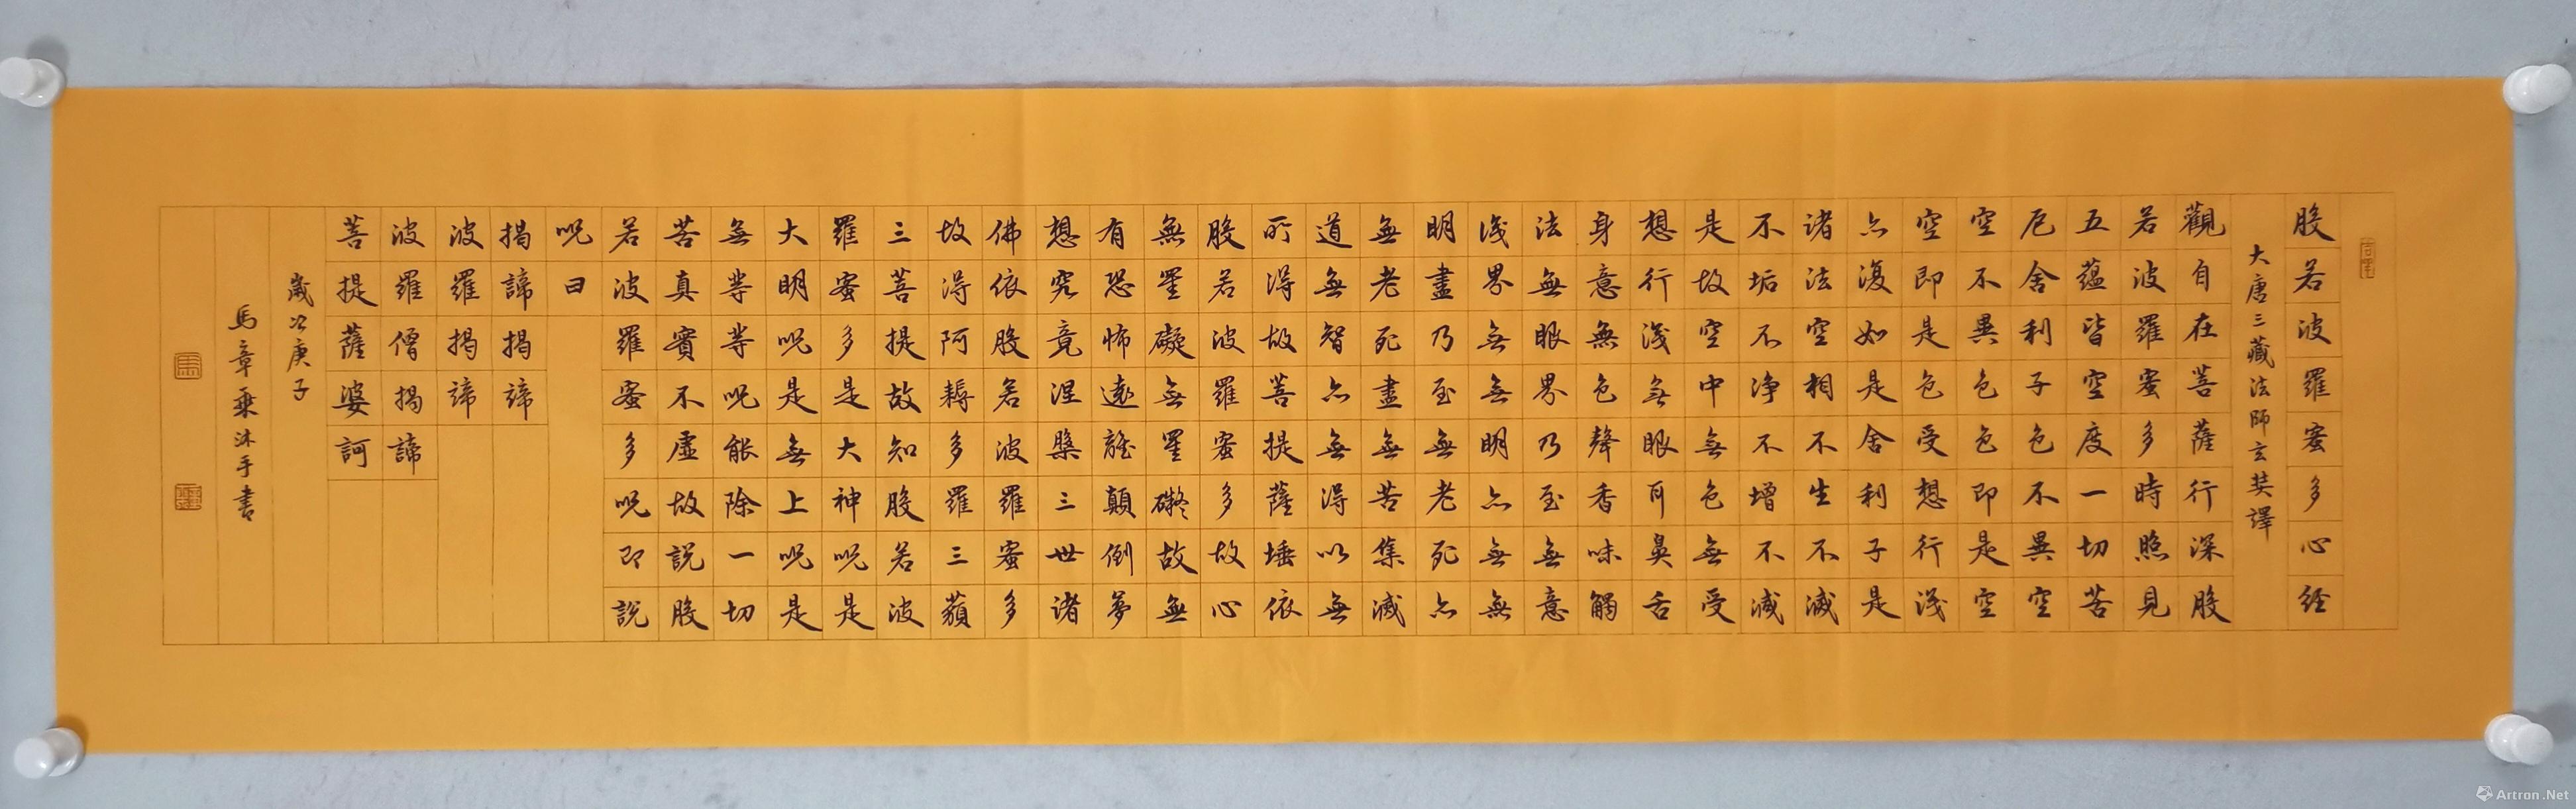 般若波羅蜜多心經
大唐三藏法師玄奘譯
觀自在菩薩行深般
若波羅蜜多時照見
五蘊皆空度一切苦
厄舍利子色不異空
空不異色色即是空
空即是色受想行識
亦復如是舍利子是
諸法空相不生不滅
不垢不淨不增不減
是故空中無色無受
想行識無眼耳鼻舌
身意無色聲香味觸
法無眼界乃至無意
識界無無明亦無無
明盡乃至無老死亦
無老死盡無苦集滅
道無智亦無得以無
所得故菩提薩埵依
般若波羅蜜多故心
無罣礙無罣礙故無
有恐怖遠離顛倒夢
想究竟涅槃三世諸
佛依般若波羅蜜多
故得阿耨多羅三藐
三菩提故知般若波
羅蜜多是大神呪是
大明呪是無上呪是
無等等呪能除一切
苦真實不虛故說般
若波羅蜜多呪即說
呪曰
揭諦揭諦
波羅揭諦
波羅僧揭諦
菩提薩婆訶
歲次庚子
馬章乘沐手書
馬
Artron.Net